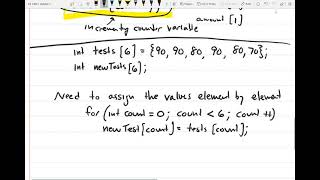 amount [1]
increments counter variable
int tests [6] = {90, 90, 80, 90, 80, 70};
int newTests[6];
Need to assign the values element by element
for (int count = 0; count < 6; count ++)
newTest[count] = tests [count];